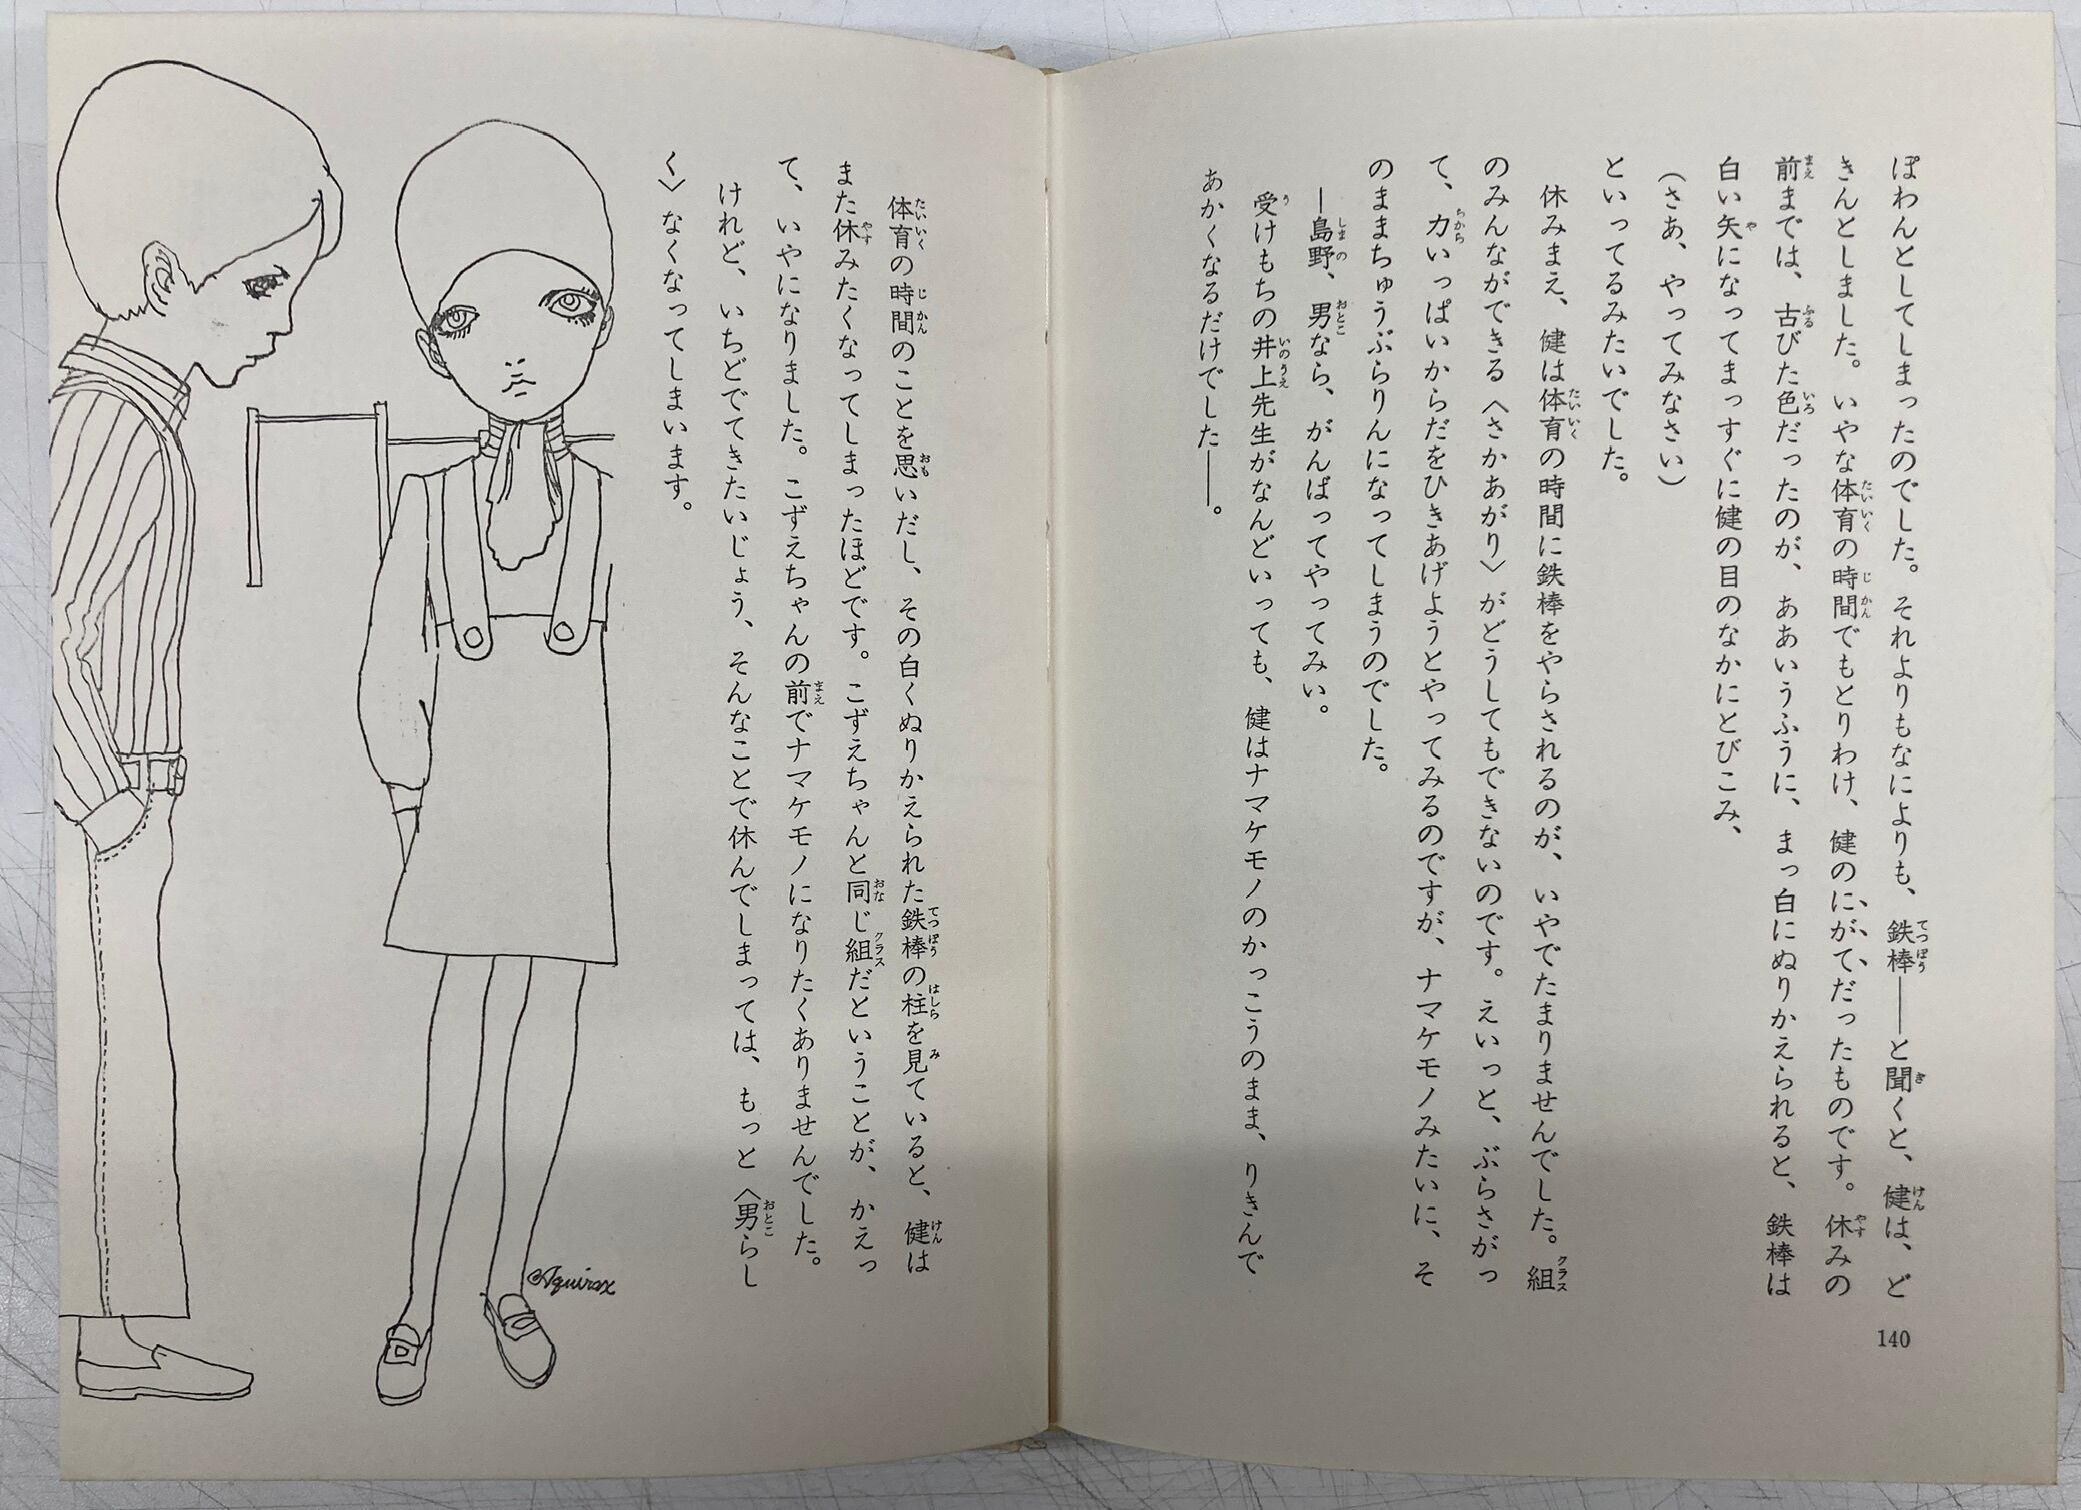 ぽわんとしてしまったのでした。それよりもなによりも、鉄棒――と聞くと、健は、ど
きんとしました。いやな体育の時間でもとりわけ、健のにがてだったものです。休みの
前までは、古びた色だったのが、ああいうふうに、まっ白にぬりかえられると、鉄棒は
白い矢になってまっすぐに健の目のなかにとびこみ、
（さあ、やってみなさい）
といってるみたいでした。
休みまえ、健は体育の時間に鉄棒をやらされるのが、いやでたまりませんでした。組
のみんなができる〈さかあがり〉がどうしてもできないのです。えいっと、ぶらさがっ
て、力いっぱいからだをひきあげようとやってみるのですが、ナマケモノみたいに、そ
のままちゅうぶらりんになってしまうのでした。
―島野、男なら、がんばってやってみい。
受けもちの井上先生がなんどいっても、健はナマケモノのかっこうのまま、りきんで
あかくなるだけでした――。
140
体育の時間のことを思いだし、その白くぬりかえられた鉄棒の柱を見ていると、健は
また休みたくなってしまったほどです。こずえちゃんと同じ組だということが、かえっ
て、いやになりました。こずえちゃんの前でナマケモノになりたくありませんでした。
けれど、いちどでてきたいじょう、そんなことで休んでしまっては、もっと〈男らし
く〉なくなってしまいます。
©Aquirax